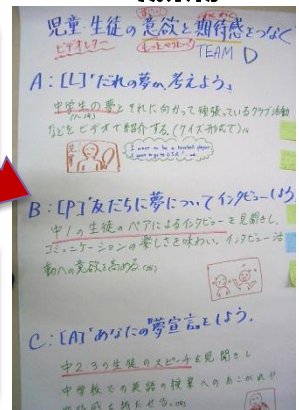 児童 生徒の意欲と期待感をつなぐ
ビデオレター
TEAM D
A:[L]「だれの夢か、考えよう」
中学生の夢とそれに向かって頑張っているクラブ活動
などをビデオで紹介する(クイズ形式で)。
I want to be a baseball player.
B:[P]「友だちに夢についてインタビューしよう
中1の生徒のペアによるインタビューを見聞きし、
コミュニケーションの楽しさを味わい、インタビュー活
動への意欲を高める
C:[A]「あなたの夢宣言をしよう。
中2.3の生徒のスピーチを見聞きし
中学校での英語の授業へのあこがれや